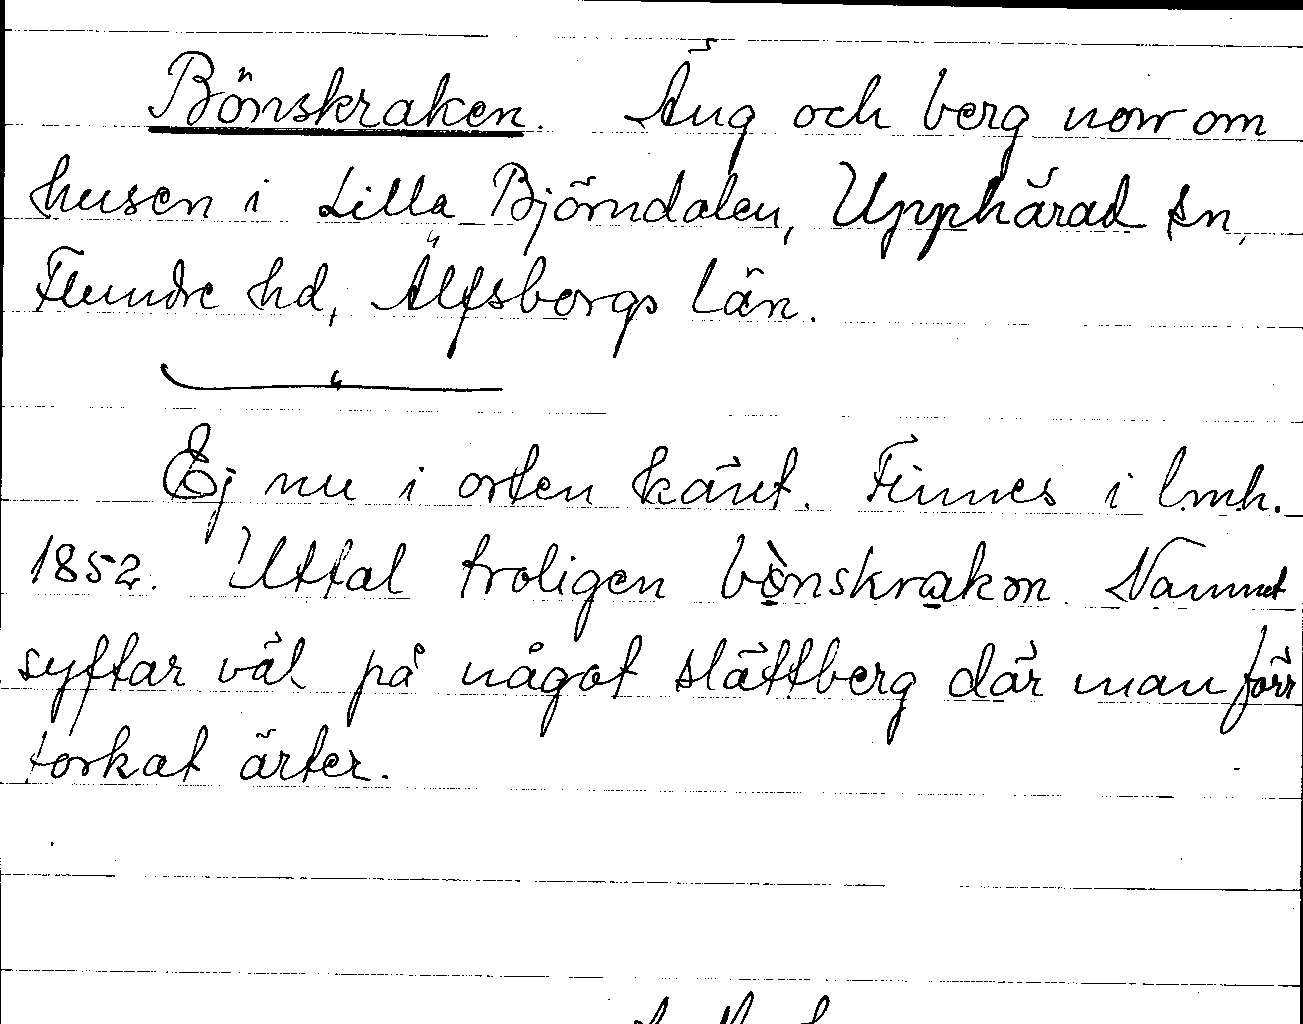 Bönskraken. Äng och berg norr om
husen i Lilla Björndalen, Upphärad sn,
Flundre hd, Älfsborgs län.
Ej nu i orten känt. Finnes i lmh.
1852. Uttal troligen bònskrakon. Namnet
syftar väl på något slättberg där man förr
torkat ärter.